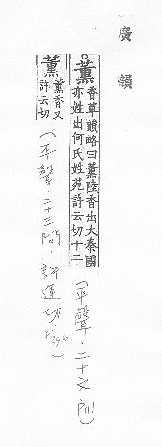 廣韻
薰
香草韻略曰薰陸香出大秦國
亦姓出何氏姓苑許云切十二
(平聲.二十文
薰
薰香又
許云切
聲.二十三問.許運切.